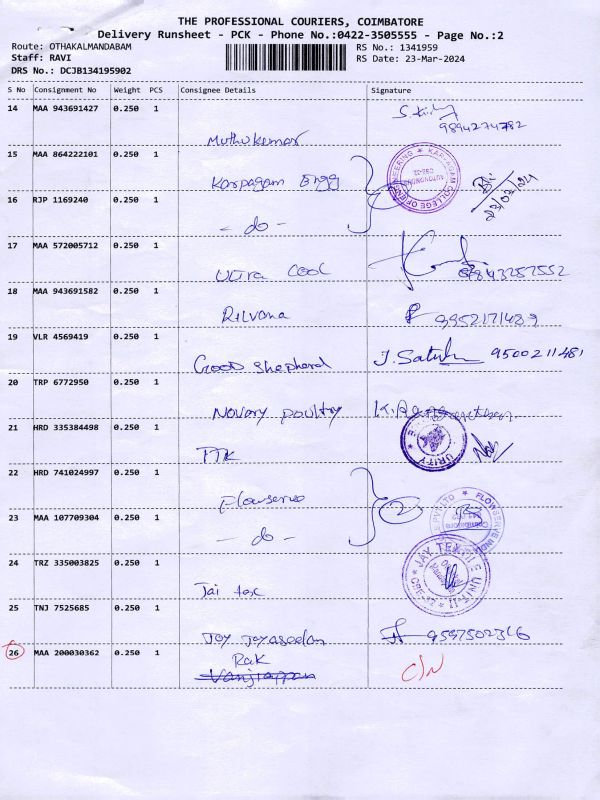 THE PROFESSIONAL COURIERS, COIMBATORE
Delivery Runsheet - PCK - Phone No.:0422-3505555 - Page No.:2
Route: OTHAKALMANDABAM
RS No.: 1341959
Staff: RAVI
RS Date: 23-Mar-2024
DRS No.: DCJB134195902
S No Consignment No Weight PCS Consignee Details Signature
14 MAA 943691427 0.250 1
9894274782
Muthukumar
15 MAA 864222101 0.250 1
Karpagam Engg
KARPAGAM COLLEGE OF ENGINEERING
AUTONOMOUS
23/03/24
16 RJP 1169240 0.250 1
- do -
17 MAA 572005712 0.250 1
Ultra Cool
9843257552
18 MAA 943691582 0.250 1
Rilvana
9952171489
19 VLR 4569419 0.250 1
Good Shepherd
9500211481
20 TRP 6772950 0.250 1
Novary poultry
21 HRD 335384498 0.250 1
PTK
22 HRD 741024997 0.250 1
Flowserve
2
FLOWSERVE INDIA
23 MAA 107709304 0.250 1
- do -
24 TRZ 335003825 0.250 1
Jai tex
JAY TEXTILE UNIT-II
25 TNJ 7525685 0.250 1
Joy Jayaseelan
9597502346
26 MAA 200030362 0.250 1
Rak
C/N